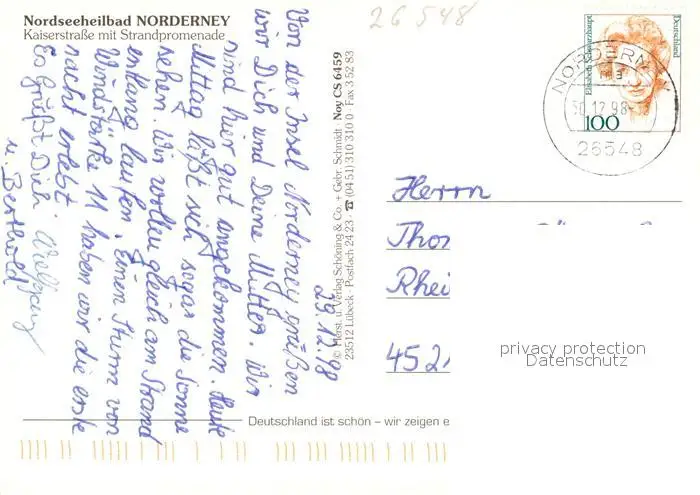 Nordseeheilbad NORDERNEY
Kaiserstraße mit Strandpromenade
26548
29.12.98
Von der Insel Norderney grüßen
wir Dich und Deine Mutter. Wir
sind hier gut angekommen. Heute
Mittag läßt sich sogar die Sonne
sehen. Wir wollen gleich am Strand
entlang laufen. Einen Sturm von
Windstärke 11 haben wir die erste
nacht erlebt.
Es grüßt Dich Wolfgang
u. Berthold
© Herst. u. Verlag Schöning & Co. + Gebr. Schmidt · Noy CS 6459
23512 Lübeck · Postfach 24 23 · ☎ (04 51) 310 310 0 · Fax 3 52 83
Elisabeth Schwarzhaupt
Deutschland
100
NORDERNEY
30.12.98
26548
Herrn
Thor
Rhei
452
privacy protection
Datenschutz
Deutschland ist schön – wir zeigen e